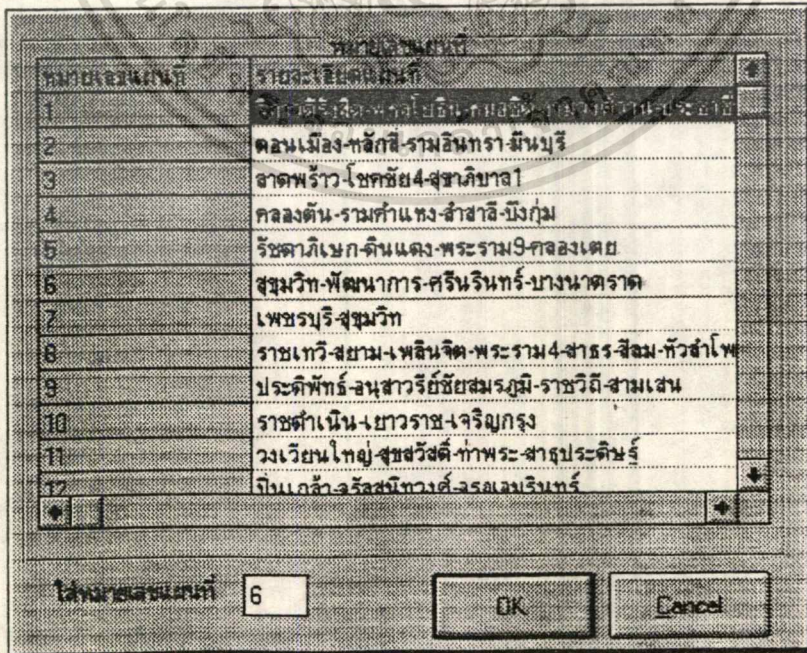 หมายเลขแผนที่
หมายเลขแผนที่ รายละเอียดแผนที่
1
2 ดอนเมือง-หลักสี่-รามอินทรา-มีนบุรี
3 ลาดพร้าว-โชคชัย4-สุขาภิบาล1
4 คลองตัน-รามคำแหง-ลำสาลี-บึงกุ่ม
5 รัชดาภิเษก-ดินแดง-พระราม9-คลองเตย
6 สุขุมวิท-พัฒนาการ-ศรีนรินทร์-บางนาตราด
7 เพชรบุรี-สุขุมวิท
8 ราชเทวี-สยาม-เพลินจิต-พระราม4-สาธร-สีลม-หัวลำโพ
9 ประดิพัทธ์-อนุสาวรีย์ชัยสมรภูมิ-ราชวิถี-สามเสน
10 ราชดำเนิน-เยาวราช-เจริญกรุง
11 วงเวียนใหญ่-สุขสวัสดิ์-ท่าพระ-สาธุประดิษฐ์
12 ปิ่นเกล้า-จรัลสนิทวงศ์-จรญเอมรินทร์
ใส่หมายเลขแผนที่ 6 OK Cancel